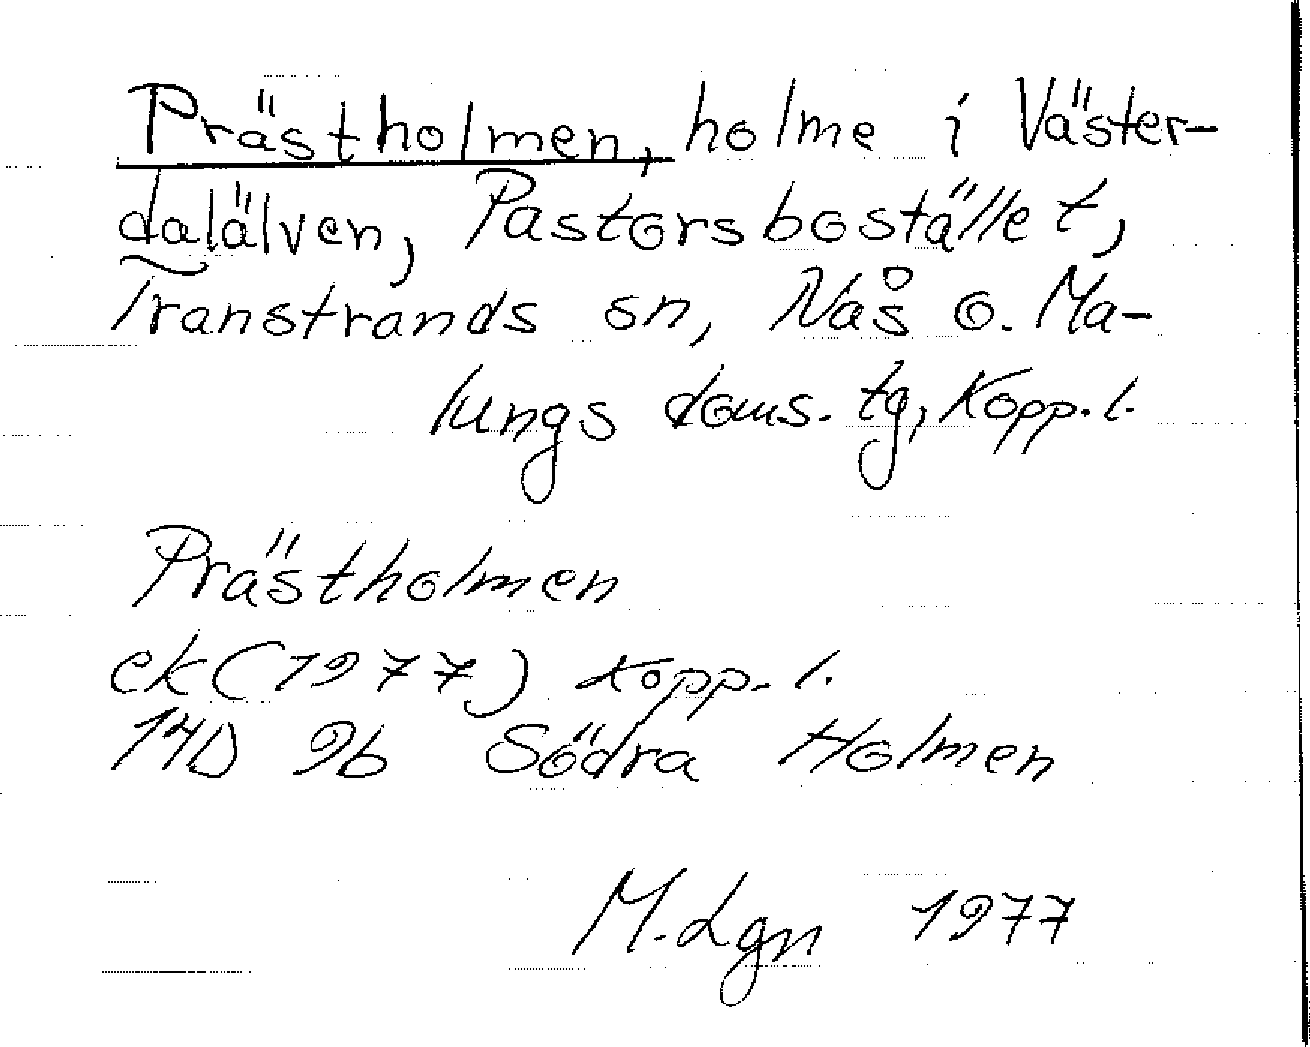 Prästholmen, holme i Väster-
dalälven, Pastorsbostället,
Transtrands sn, Nås o. Ma-
lungs doms. tg, Kopp. l.
Prästholmen
ek (1977) Kopp. l.
14D 9b Södra Holmen
M. Lgn 1977